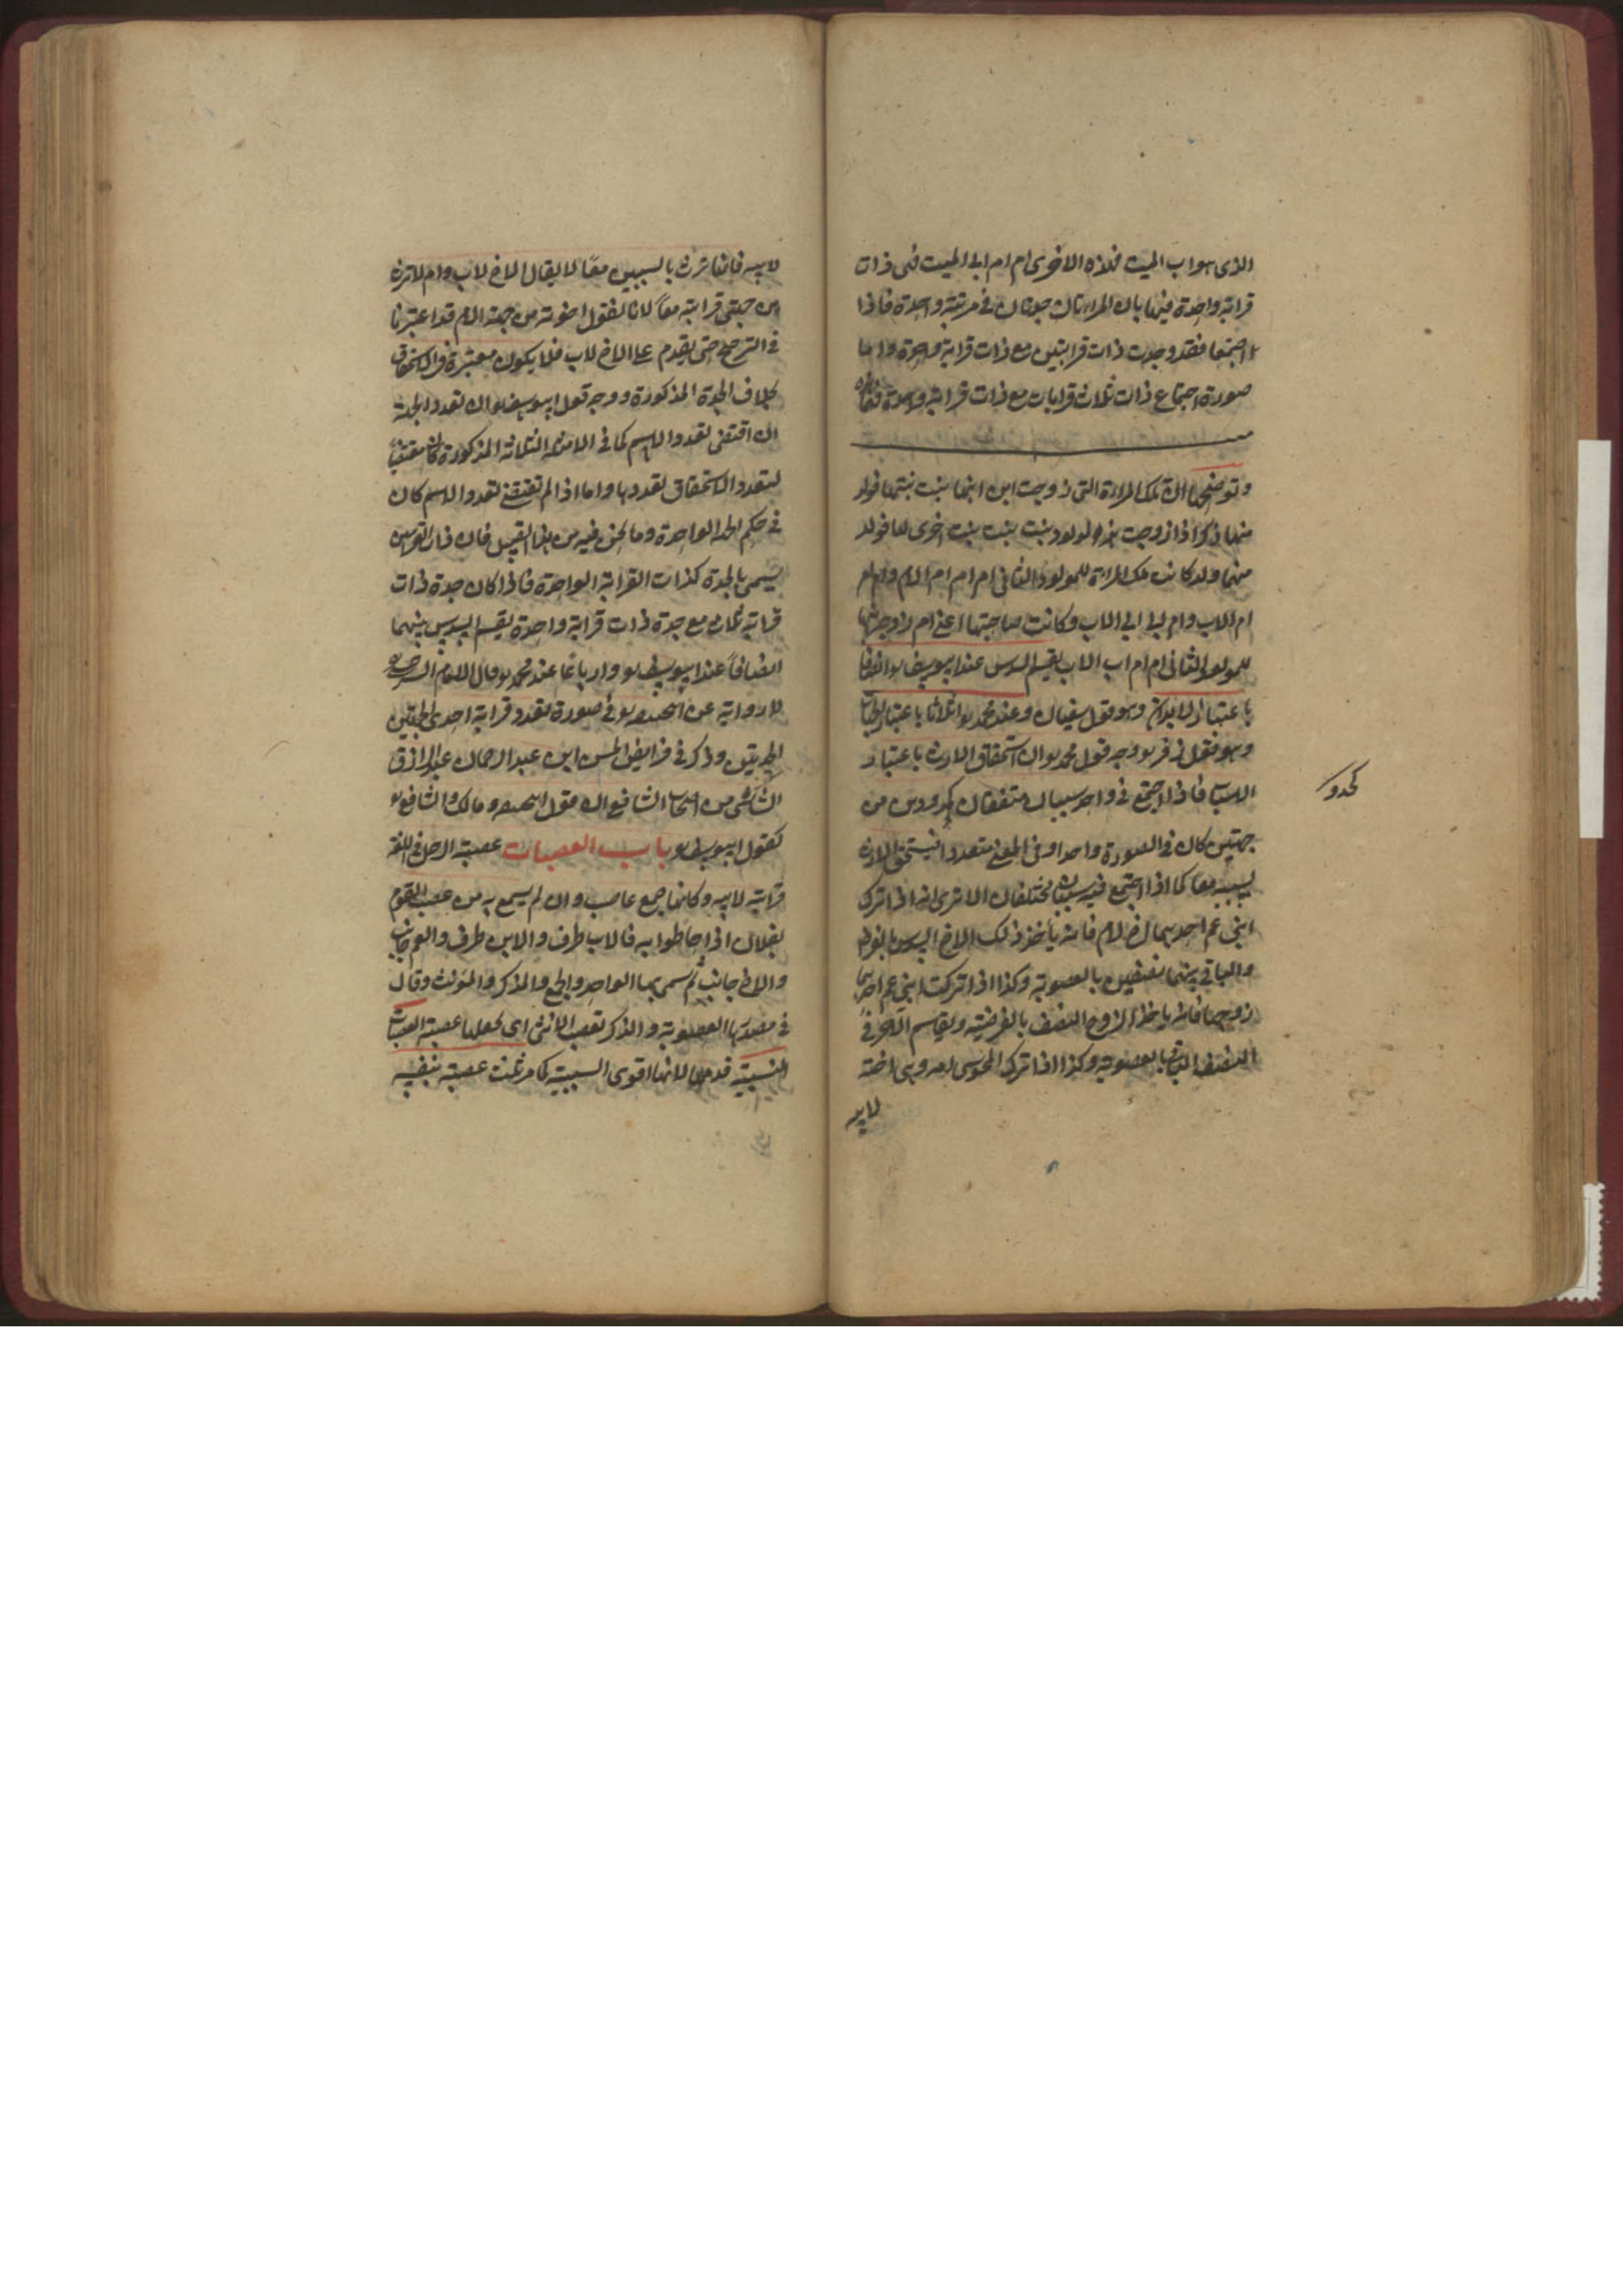 الذى هو اب الميت فهذه الاخرى ام ام اب الميت فهى ذات
قرابة واحدة فهاتان المرأتان جدتان فى مرتبة واحدة فاذا
اجتمعا فقد وجدت ذات قرابتين مع ذات قرابة واحدة واما
صورة اجتماع ذات ثلاث قرابات مع ذات قرابة واحدة
وتوضيحها ان تلك المرأة التى زوجت ابن ابنها بنت بنتها فولد
منهما ذكر اذا زوجت هذا المولود بنت بنت بنت اخرى لها فولد
منهما ولد كانت تلك المرأة للمولود الثانى ام ام ام الام وام ام
ام الاب وام اب اب الاب وكانت صاحبتها اعنى ام زوج بنتها
للمولود الثانى ام ام اب الاب يقسم السدس عند ابى يوسف انصافا
باعتبار الابدان وهو قول سفيان وعند محمد اثلاثا باعتبار الجهات
وهو قول زفر وجه قول محمد ان استحقاق الارث باعتبار
الاسباب فاذا اجتمع فى واحد سببان متفقان كجدودتين من
جهتين كان فى الصورة واحدا وفى المعنى متعددا فيستحق الارث
بسببيه معا كما اذا اجتمع فيه سببان مختلفان الا ترى انه اذا ترك
ابنى عم احدهما اخ لام فانه يأخذ ذلك الاخ السدس بالفرض
والباقى بينهما نصفين بالعصوبة وكذا اذا تركت ابنى عم احدهما
زوجها فانه ياخذ الزوج النصف بالفرضية ويقاسم الآخر فى
النصف الباقى بالعصوبة وكذا اذا ترك المجوسى امه وهى اخته
لابيه
كجدو
لابيه فانها ترث بالسببين معا لا يقال الاخ لاب وام لا ترث
من جهتى قرابته معا لانا نقول اخوته من جهة الام قد اعتبرنا
فى الترجيح حتى يقدم على الاخ لاب فلا يكون معتبرة فى الاستحقاق
بخلاف الجدة المذكورة ووجه قول ابى يوسف ان تعدد الجهة
ان اقتضى تعدد الاسم كما فى الامثلة الثلاثة المذكورة كان مقتضيا
لتعدد الاستحقاق بتعددها واما اذا لم تقتض تعدد الاسم كان
فى حكم الجهة الواحدة وما نحن فيه من هذا القبيل فان ذات القرابتين
يسمى بالجدة كذات القرابة الواحدة فاذا كان جدة ذات
قرابة ثلاث مع جدة ذات قرابة واحدة يقسم السدس بينهما
انصافا عند ابى يوسف وارباعا عند محمد وقال الامام السرخسى
لا رواية عن ابى حنيفة فى صورة تعدد قرابة احدى الجدتين
وذكر فى فرايض الحسن ابن عبد الرحمان عبد الرازق
الشاشى من اصحاب الشافعى ان قول ابى حنيفة ومالك والشافعى
كقول ابى يوسف باب العصبات عصبة الرجل فى اللغة
قرابته لابيه وكانها جمع عاصب وان لم يسمع به من عصب القوم
بفلان اذا احاطوا به فالاب طرف والابن طرف والعم جانب
والاخ جانب ثم سمى بها الواحد والجمع والمذكر والمونث وقال
فى مصدرها العصوبة والذكر تعصب الانثى اى يجعلها عصبة العصبات
النسبية قدمها لانها اقوى السببية كما مر ثلث عصبة بنفسه